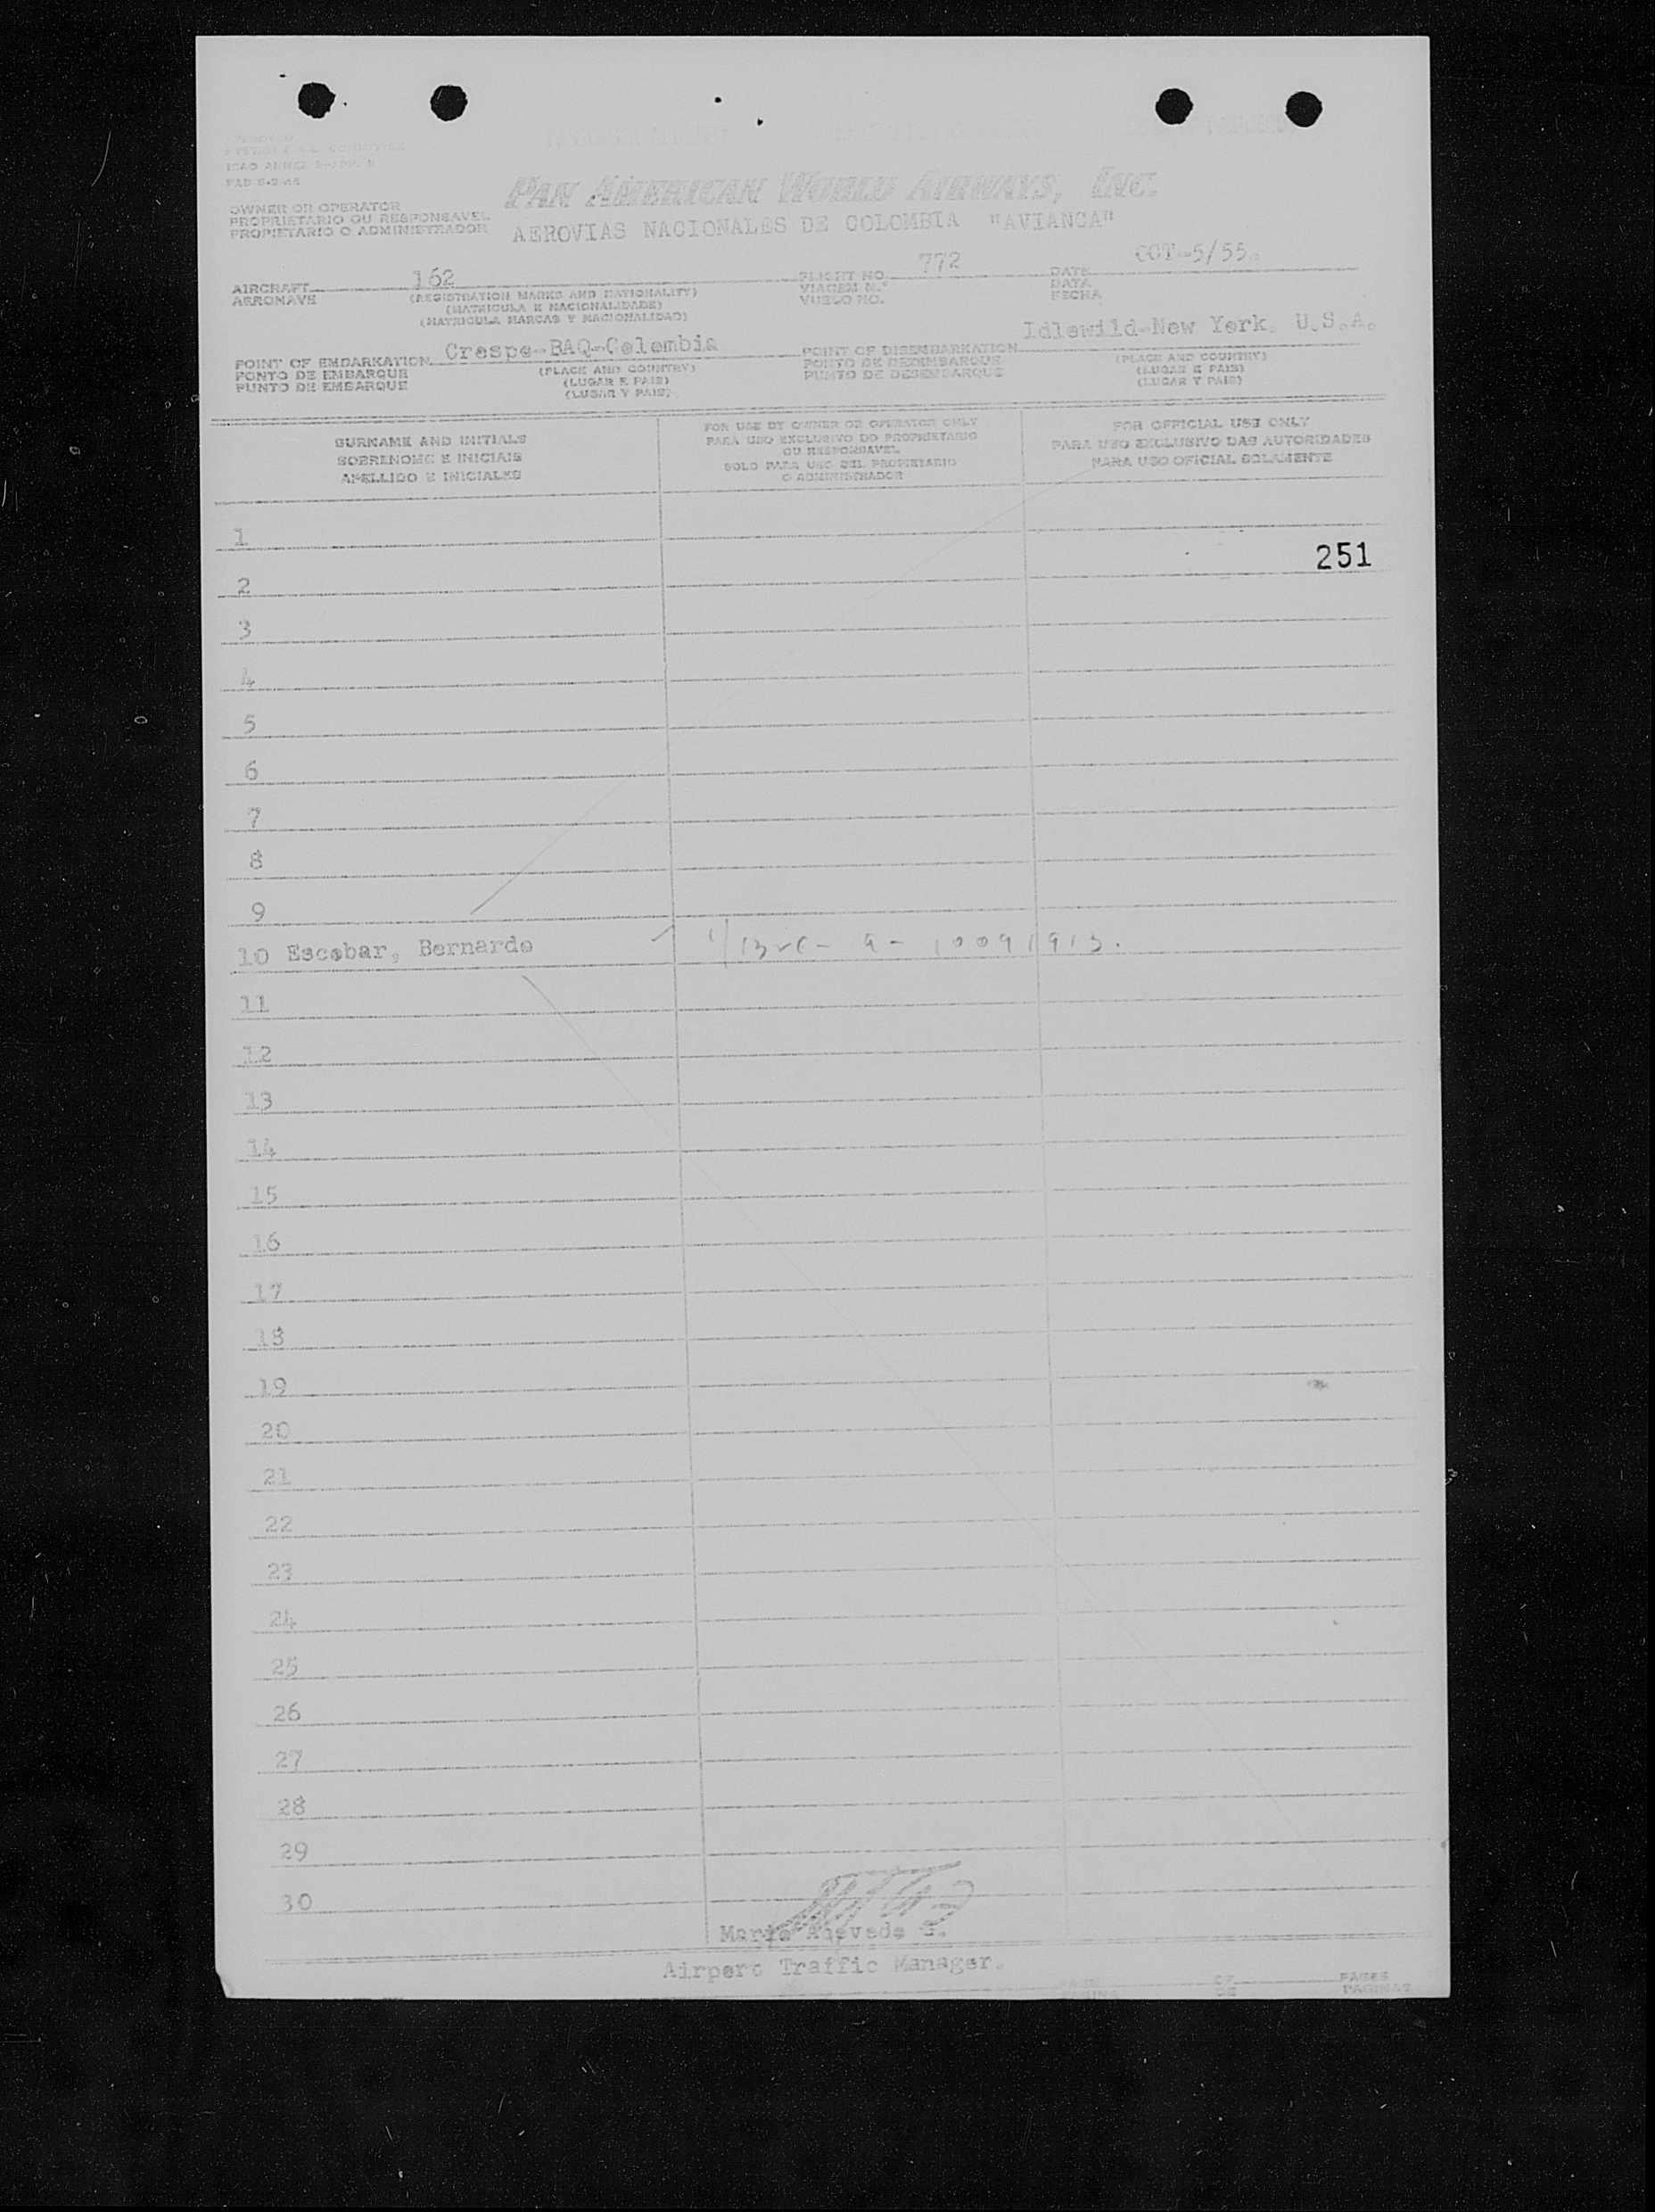 ICAO ANNEX 9-APP. 2
PAN AMERICAN WORLD AIRWAYS, INC.
OWNER OR OPERATOR
PROPRIETARIO OU RESPONSAVEL
PROPIETARIO O ADMINISTRADOR
AEROVIAS NACIONALES DE COLOMBIA "AVIANCA"
AIRCRAFT 162 FLIGHT NO. 772 DATE OCT-5/55.
AERONAVE (REGISTRATION MARKS AND NATIONALITY) VIAGEM N.º DATA
(MATRICULA E NACIONALIDADE) VUELO NO. FECHA
(MATRICULA MARCAS Y NACIONALIDAD)
POINT OF EMBARKATION Crespo-BAQ-Colombia POINT OF DISEMBARKATION Idlewild-New York. U.S.A.
PONTO DE EMBARQUE (PLACE AND COUNTRY) PONTO DE DEZEMBARQUE (PLACE AND COUNTRY)
PUNTO DE EMBARQUE (LUGAR E PAIS) PUNTO DE DESEMBARQUE (LUGAR E PAIS)
(LUGAR Y PAIS) (LUGAR Y PAIS)
SURNAME AND INITIALS
SOBRENOME E INICIAIS
APELLIDO E INICIALES
FOR USE BY OWNER OR OPERATOR ONLY
PARA USO EXCLUSIVO DO PROPRIETARIO
OU RESPONSAVEL
SOLO PARA USO DEL PROPIETARIO
O ADMINISTRADOR
FOR OFFICIAL USE ONLY
PARA USO EXCLUSIVO DAS AUTORIDADES
PARA USO OFICIAL SOLAMENTE
1
251
2
3
4
5
6
7
8
9
10 Escobar, Bernardo
11
12
13
14
15
16
17
18
19
20
21
22
23
24
25
26
27
28
29
30
Mario Acevedo G.
Airport Traffic Manager.
OF PAGES
DE PAGINAS